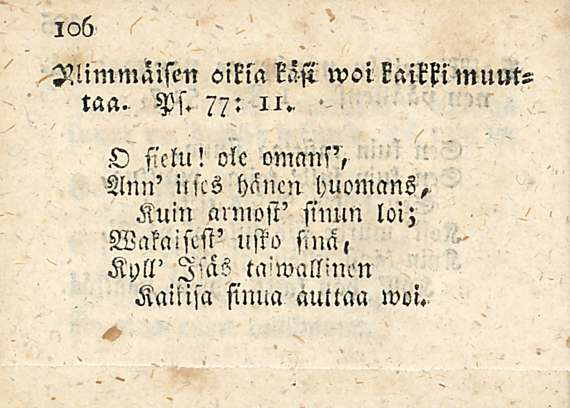 106
Ylimmäisen oikia käsi woi kaikki muut=
taa. Ps. 77: 11.
O sielu! ole omans',
Ann' itses hänen huomans,
Kuin armost' sinun loi;
Wakaisest' usko sinä,
Kyll' Isäs taiwallinen
Kaikisa sinua auttaa woi.